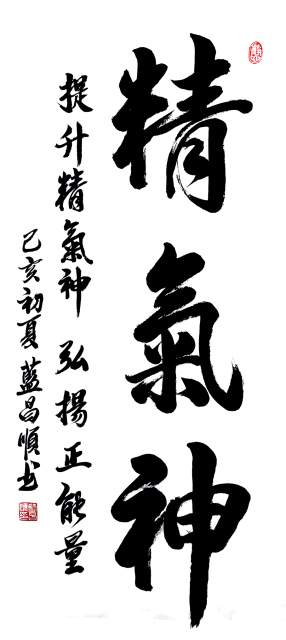 精氣神
提升精氣神 弘揚正能量
己亥初夏 藍昌順书